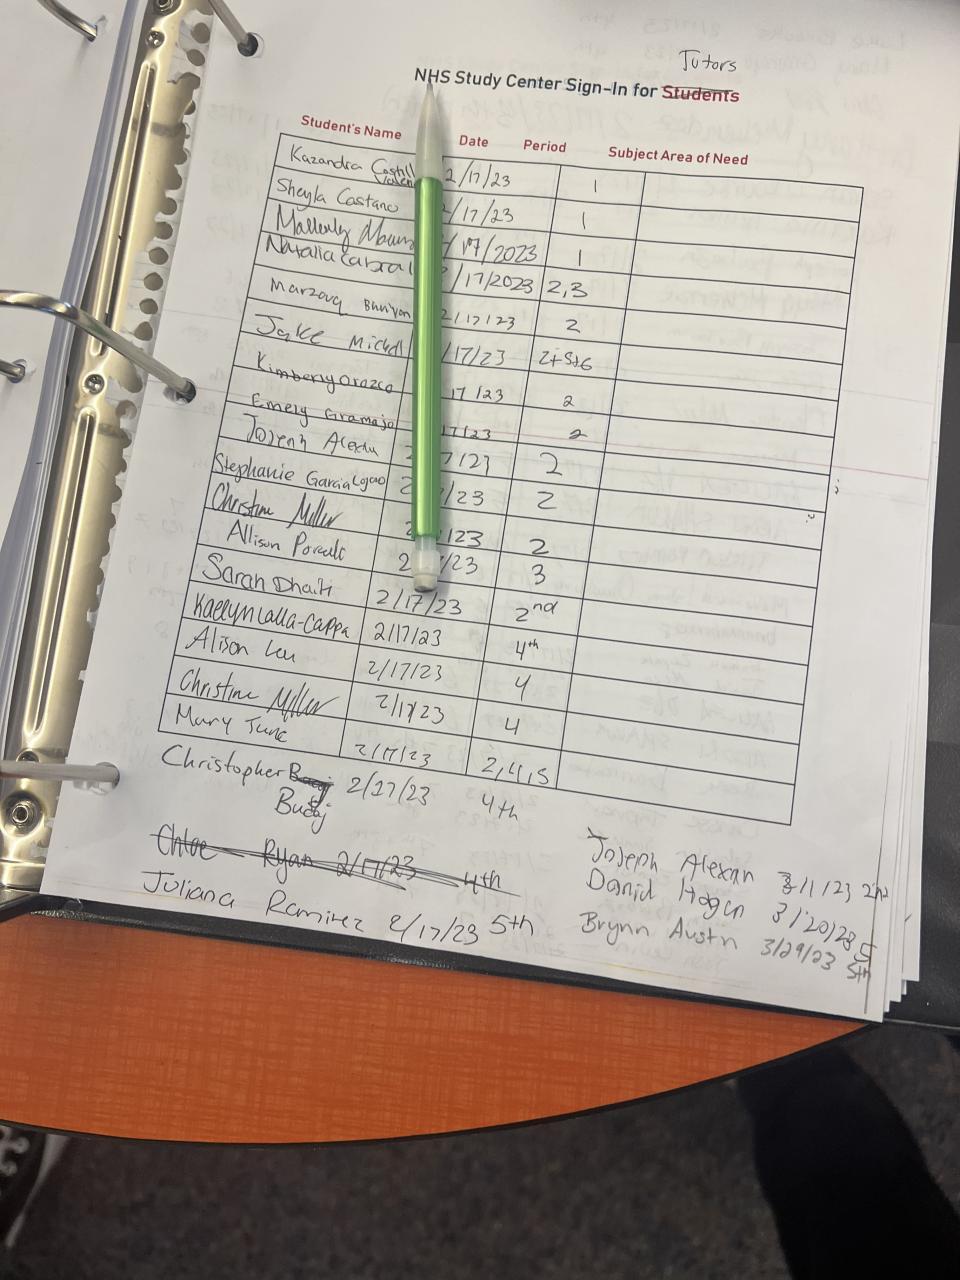 Tutors
NHS Study Center Sign-In for Students
Student's Name Date Period Subject Area of Need
Kazandra 2/17/23 1
Sheyla Castano /17/23 1
/17/2023 1
Natalia Cabral /17/2023 2,3
Marzavq Bhuiyan 2/17/23 2
Jake Michel /17/23 2+5+6
Kimberly Orozco 17/23 2
Emely Gramajo 17/23 2
Joseph 2 7/23 2
Stephanie Garcia 2 /23 2
Christine Miller 2 /23 2
Allison 2 /23 3
Sarah Dhaiti 2/17/23 2nd
Kaelyn Lalla-Cappa 2/17/23 4th
Alison Leu 2/17/23 4
Christine Miller 2/17/23 4
Mary June 2/17/23 2,4,5
Christopher 2/27/23 4th
Buday
Chloe Ryan 2/17/23 4th
Juliana Ramirez 2/17/23 5th
Joseph 3/1/23
David Hogen 3/20/23 5
Brynn Austin 3/29/23 5th